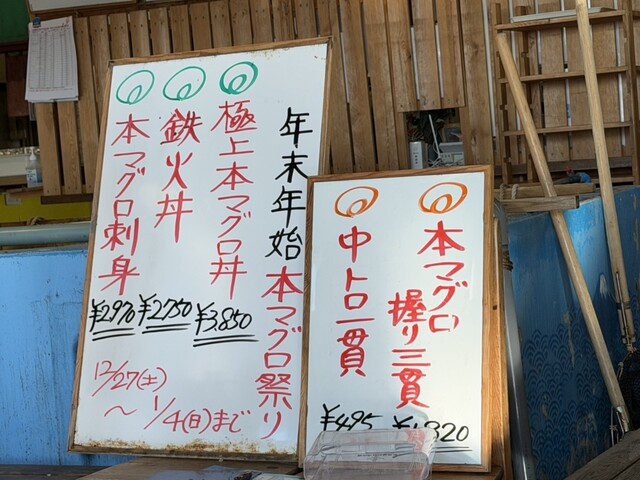 年末年始 本マグロ祭り
極上本マグロ丼
¥3,850
鉄火丼
¥2750
本マグロ刺身
¥2,970
12/27(土)
〜 1/4(日)まで
本マグロ
握り三貫
中トロ一貫
¥495